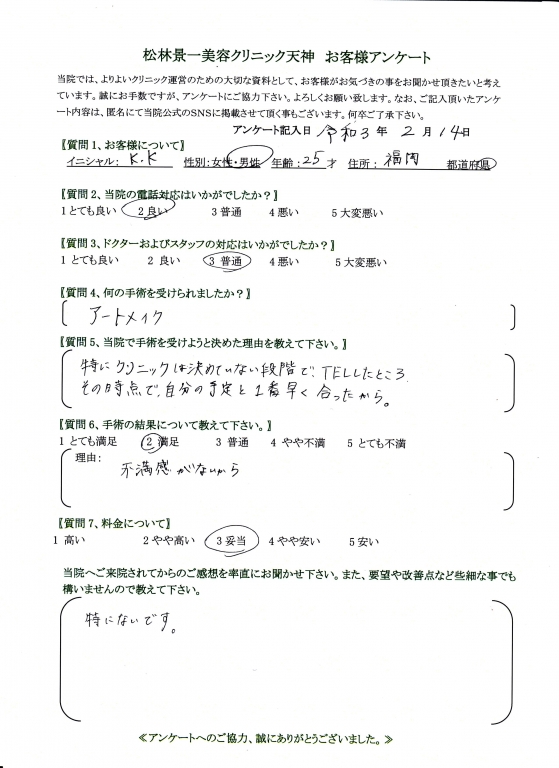 松林景一美容クリニック天神 お客様アンケート
当院では、よりよいクリニック運営のための大切な資料として、お客様がお気づきの事をお聞かせ頂きたいと考え
ています。誠にお手数ですが、アンケートにご協力下さい。よろしくお願い致します。なお、ご記入頂いたアンケ
ート内容は、匿名にて当院公式のSNSに掲載させて頂く事もございます。何卒ご了承下さい。
アンケート記入日 令和3年 2月14日
〖質問1、お客様について〗
イニシャル: K.K 性別:女性・男性 年齢:25才 住所: 福岡 都道府県
〖質問2、当院の電話対応はいかがでしたか?〗
1とても良い 2良い 3普通 4悪い 5大変悪い
〖質問3、ドクターおよびスタッフの対応はいかがでしたか?〗
1とても良い 2 良い 3 普通 4悪い 5大変悪い
〖質問4、何の手術を受けられましたか?〗
アートメイク
〖質問5、当院で手術を受けようと決めた理由を教えて下さい。〗
特にクリニックは決めていない段階で、TELLしたところ
その時点で、自分の予定と1番早く合ったから。
〖質問6、手術の結果について教えて下さい。〗
1 とても満足 2 満足 3 普通 4 やや不満 5 とても不満
理由:
不満感がないから
〖質問7、料金について〗
1 高い 2やや高い 3妥当 4やや安い 5安い
当院へご来院されてからのご感想を率直にお聞かせ下さい。また、要望や改善点など些細な事でも
構いませんので教えて下さい。
特にないです。
≪アンケートへのご協力、誠にありがとうございました。≫